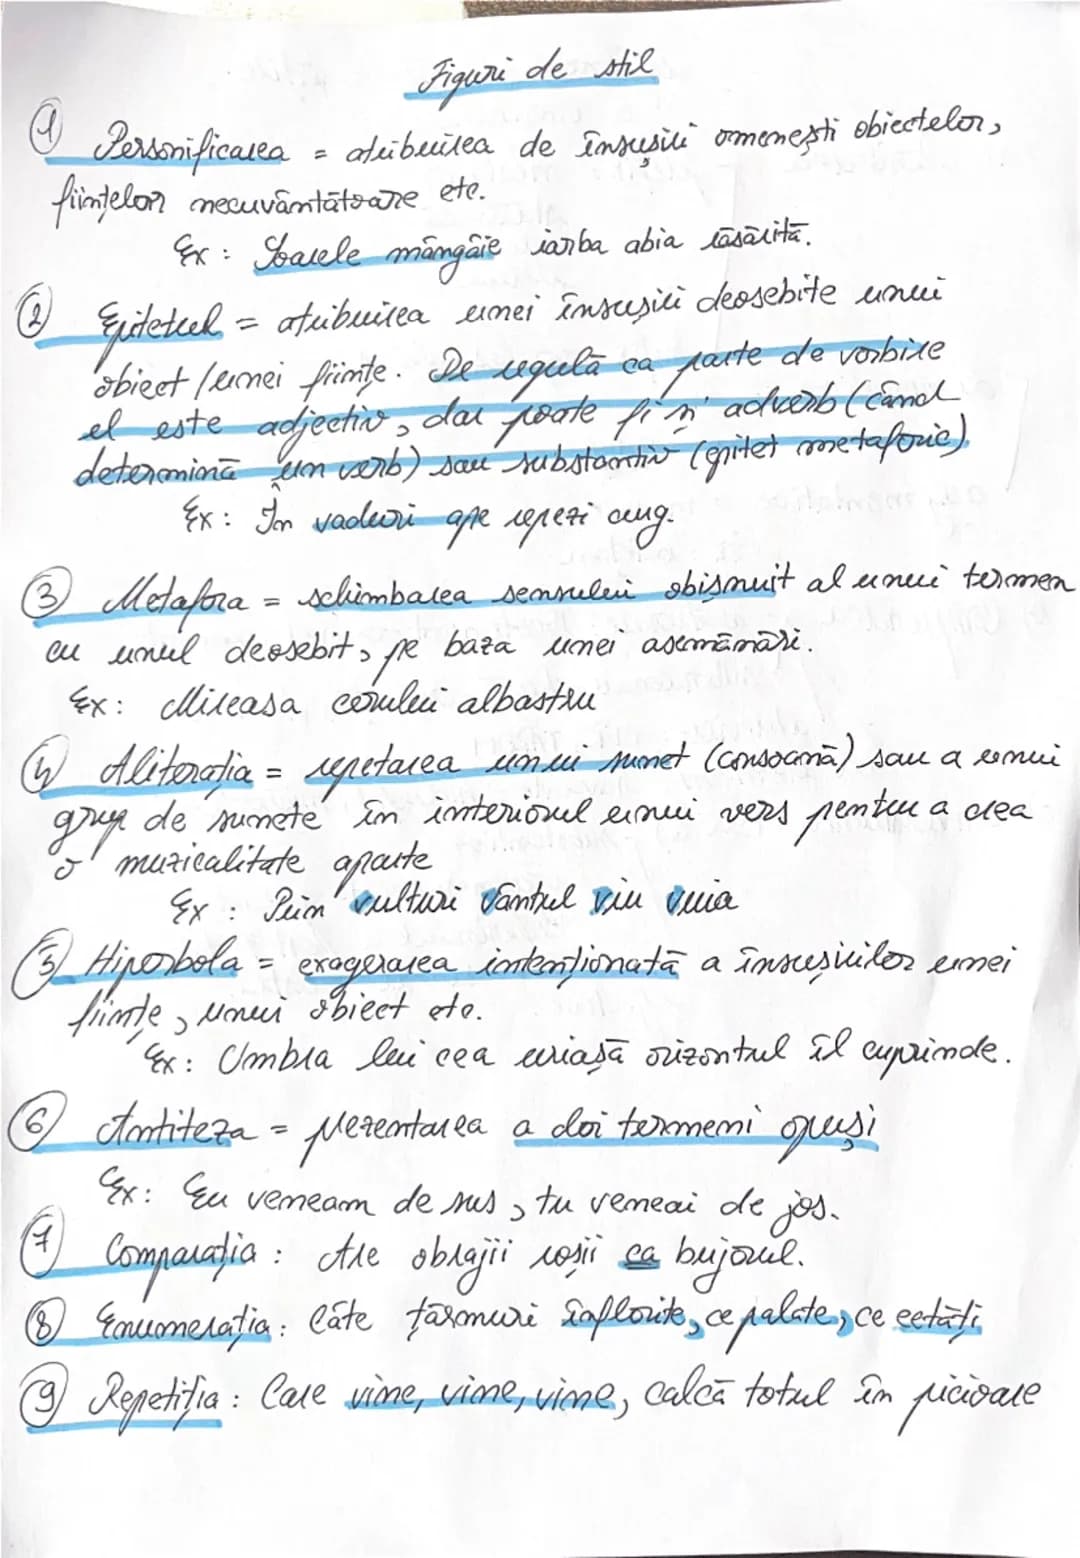 Figuri de stil
① Personificarea = atribuirea de însușiri omenești obiectelor,
ființelor necuvântătoare etc.
Ex : Soarele mângâie iarba abia răsărită.
② Epitetul = atribuirea unei însușiri deosebite unui
obiect / unei ființe. De regulă ca parte de vorbire
el este adjectiv, dar poate fi și adverb (când
determină un verb) sau substantiv (epitet metaforic).
Ex : În vaduri ape repezi curg.
③ Metafora = schimbarea sensului obișnuit al unui termen
cu unul deosebit, pe baza unei asemănări.
Ex : Mireasa cerului albastru
④ Aliterația = repetarea unui sunet (consoană) sau a unui
grup de sunete în interiorul unui vers pentru a crea
o muzicalitate aparte
Ex : Prin vulturi vântul viu vuia
⑤ Hiperbola = exagerarea intenționată a însușirilor unei
ființe, unui obiect etc.
Ex : Umbra lui cea uriașă orizontul îl cuprinde.
⑥ Antiteza = prezentarea a doi termeni opuși
Ex : Eu veneam de sus, tu veneai de jos.
⑦ Comparația : Are obrajii roșii ca bujorul.
⑧ Enumerația : Câte țărmuri înflorite, ce palate, ce cetăți
⑨ Repetiția : Care vine, vine, vine, calcă totul în picioare